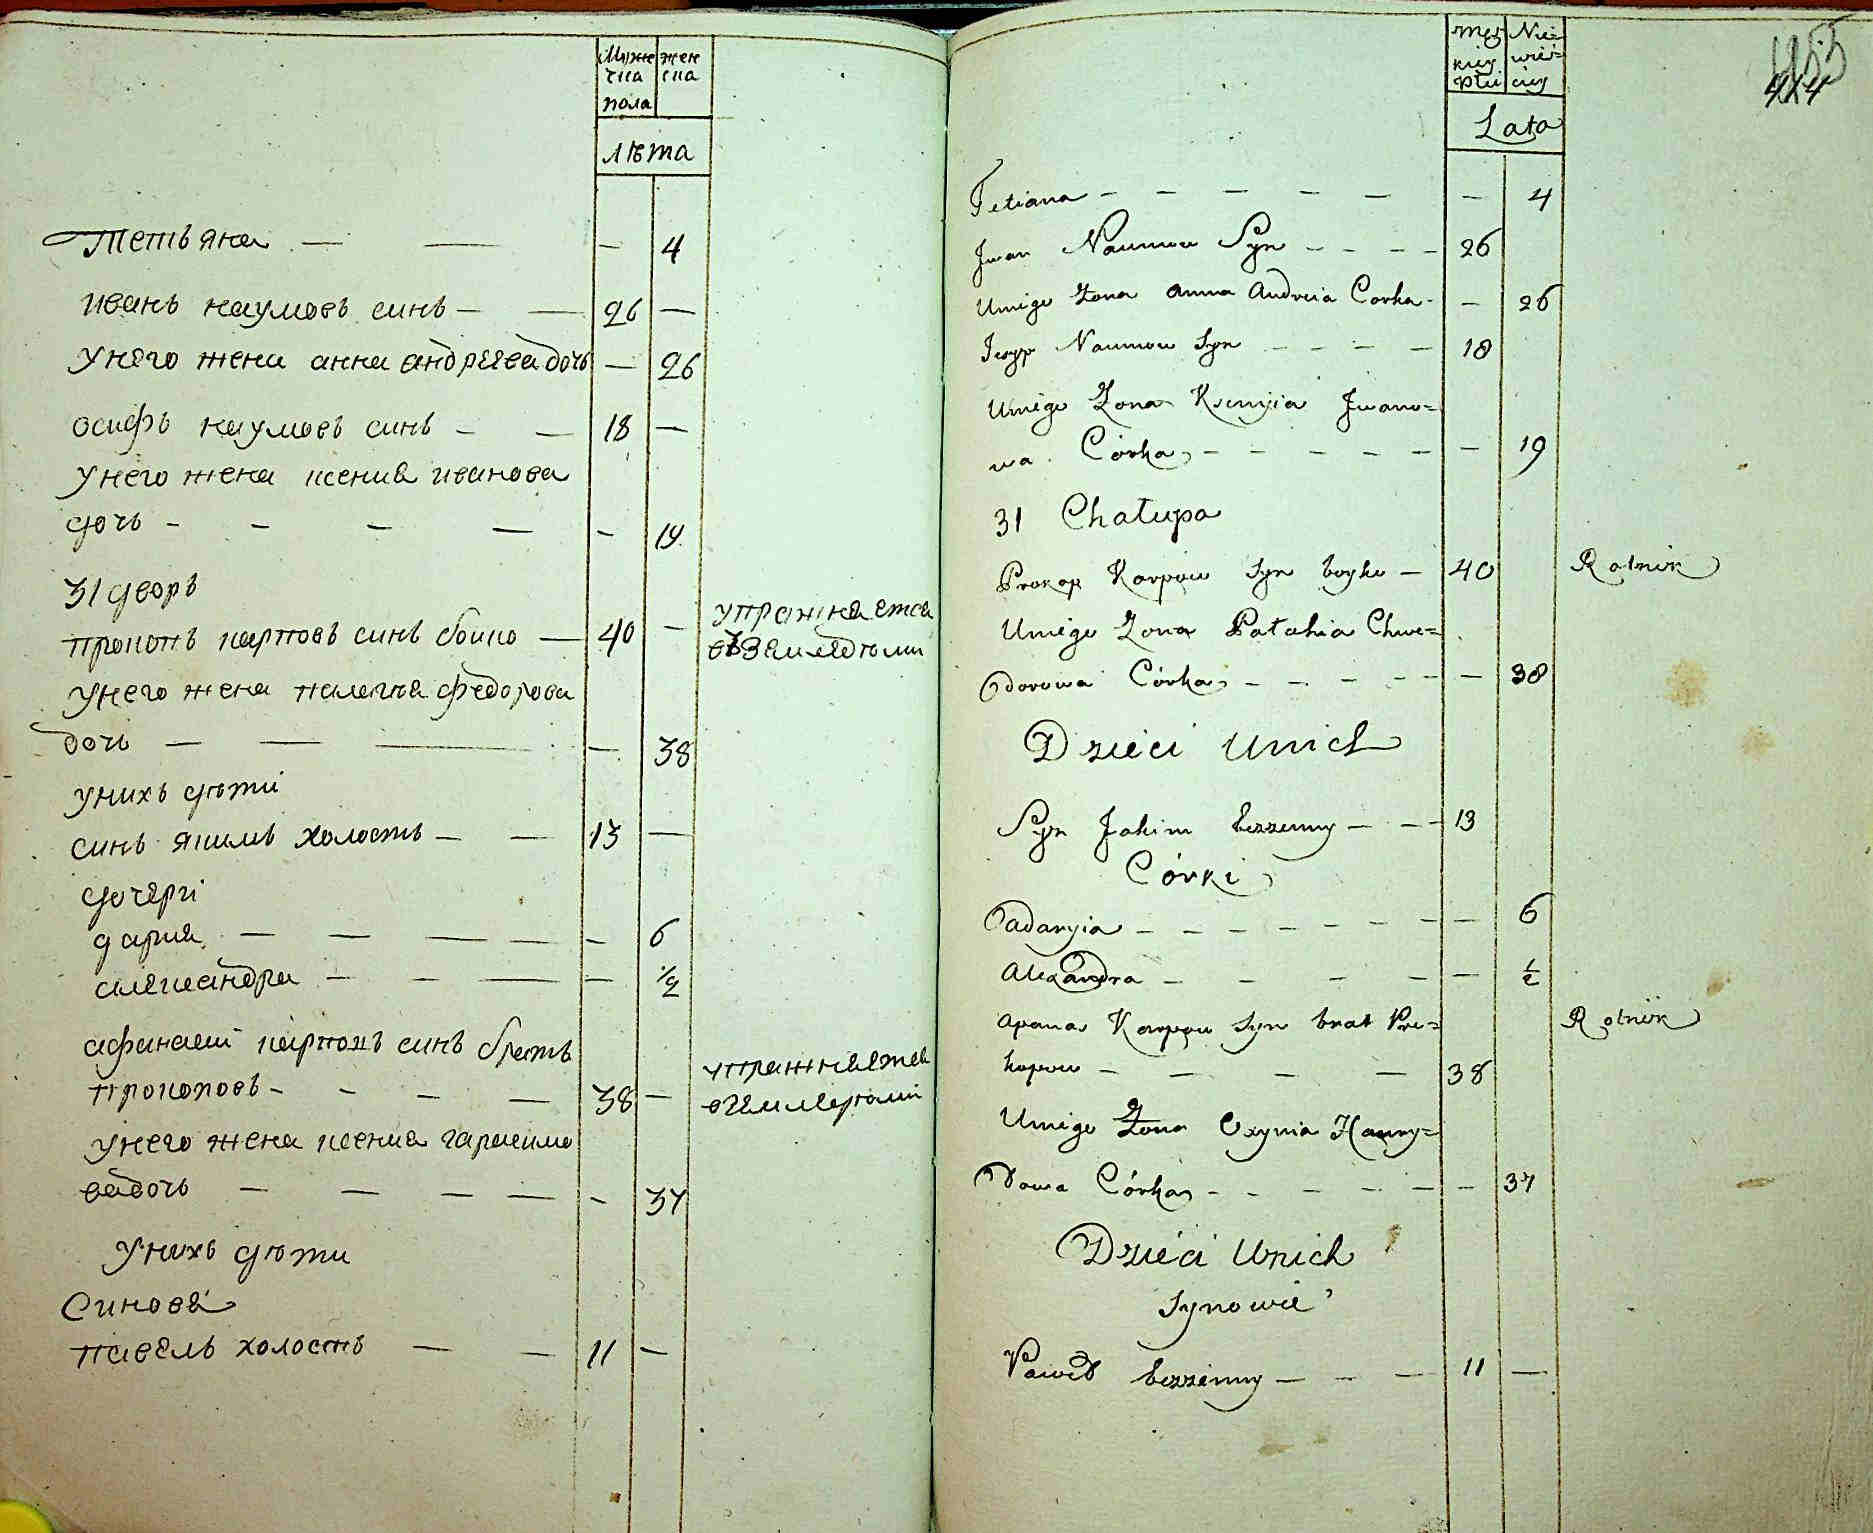 Мужеска пола
женска
лѣта
тетьяна — — — 4
иванъ наумовъ синъ — — 26 —
унего жена анна андрѣева дочь — 26
осифъ наумовъ синъ — — 18 —
унего жена ксения иванова
дочь — — — — — 19
31 дворъ
прокопъ карповъ синъ бойко — 40 — упражняется
въ земледѣлии
унего жена палагѣя федорова
дочь — — — — 38
унихъ дѣти
синъ якимъ холостъ — — 13 —
дочери
дария — — — — — 6
александра — — — — ½
афанасий карповъ синъ братъ
прокоповъ — — — — 38 — упражняется
в земледѣлии
унего жена ксения гарасимо
ва дочь — — — — — 37
Унихъ дѣти
Синовя
павелъ холостъ — — 11 —
męz
kiey
płci
Nie=
wieś=
ciey
Lata
Tetiana — — — — — — 4
Jwan Naumow Syn — — — — 26
Uniego Zona anna Andreia Corka — — 26
Iosyp Naumow Syn — — — — 18
Uniego Zona Ksenyia Jwano=
wa Córka — — — — — — 19
31 Chałupa
Prokop Karpow Syn boyko — 40 Rolnik
Uniego Zona Palahia Chwe=
dorowa Córka — — — — — — 38
Dzieci Unich
Syn Jakim bezzenny — — — 13
Córki
Odaryia — — — — — — — 6
Alexandra — — — — — — ½
Apanas Karpow Syn brat Pro= Rolnik
kopow — — — — 38
Uniego Zona Oxynia Harry=
Dowa Córka — — — — — — 37
Dzieci Unich
Synowie
Paweł bezzenny — — — 11 —